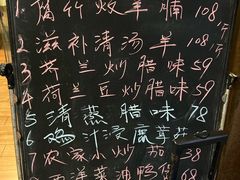 1. 腐竹炆羊腩 108/斤
2 滋补清汤羊 108/斤
3 芥兰炒腊味 59
4 荷兰豆炒腊味 59
5 清蒸腊味 78
6 鸡汁浸
7 农家小炒茄 38
西洋菜 68